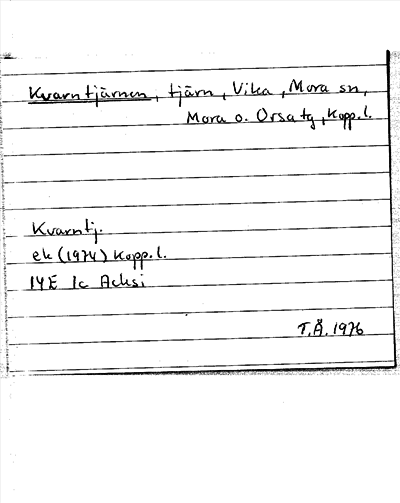 Kvarntjärnen, tjärn, Vika, Mora sn,
Mora o. Orsa tg, Kopp.l.
Kvarntj.
ek (1974) Kopp.l.
14E 1c Acksi
T.Å. 1976